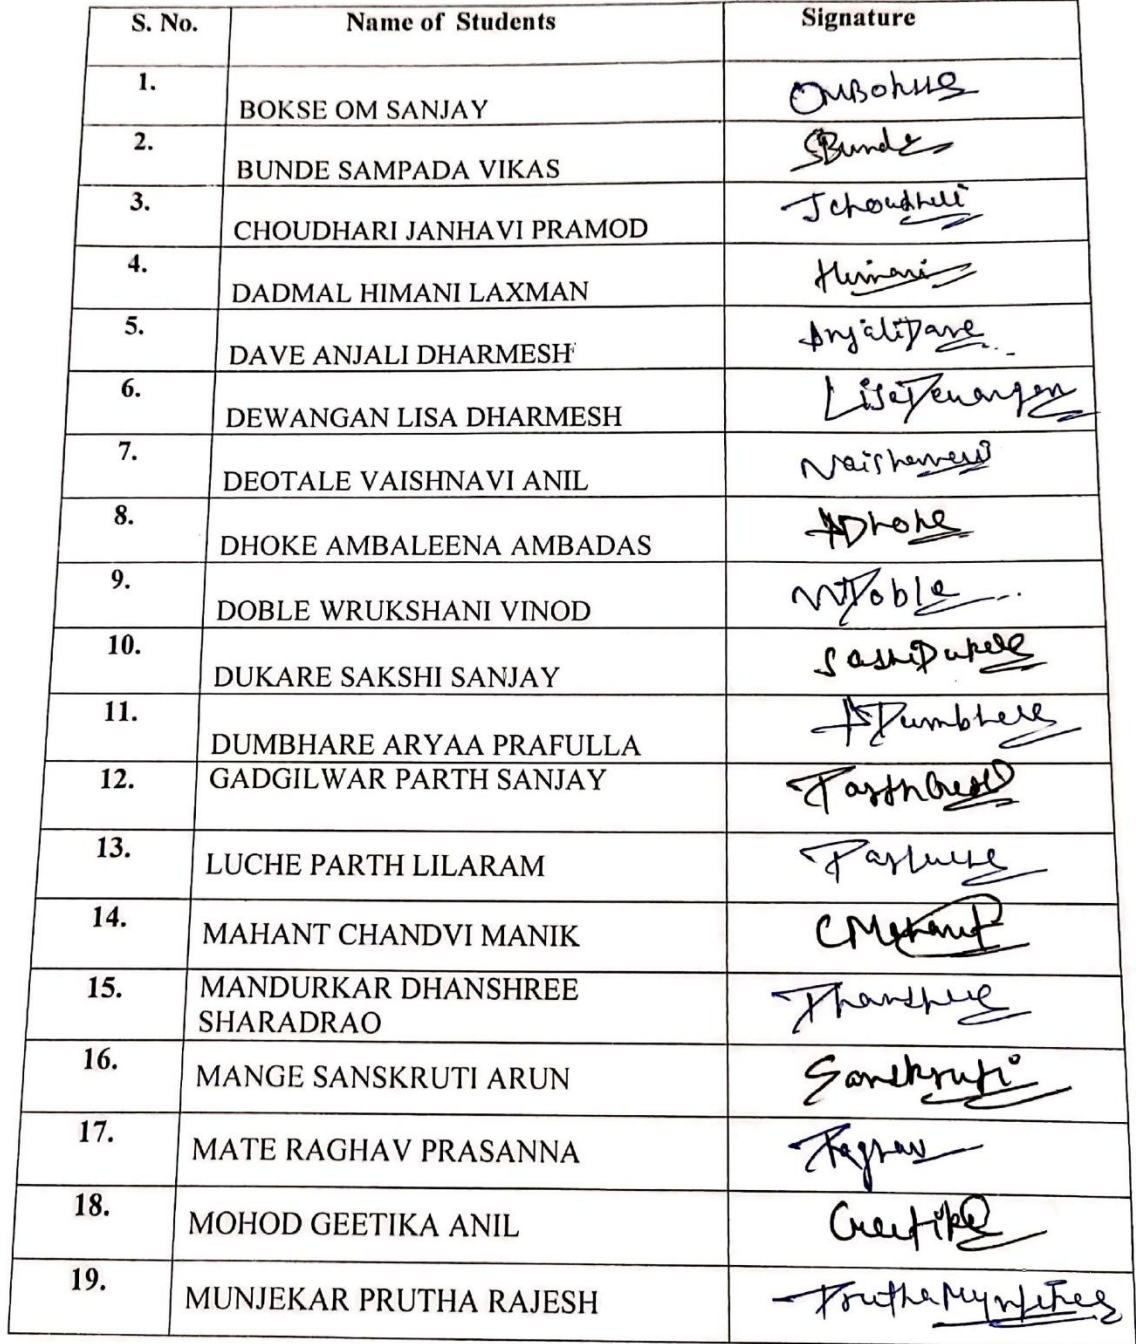 S. No. Name of Students Signature
1. BOKSE OM SANJAY OMBokse
2. BUNDE SAMPADA VIKAS SBunde
3. CHOUDHARI JANHAVI PRAMOD JChoudhari
4. DADMAL HIMANI LAXMAN Himani
5. DAVE ANJALI DHARMESH AnjaliDave
6. DEWANGAN LISA DHARMESH LisaDewangan
7. DEOTALE VAISHNAVI ANIL Vaishnavi
8. DHOKE AMBALEENA AMBADAS ADhoke
9. DOBLE WRUKSHANI VINOD
10. DUKARE SAKSHI SANJAY
11. DUMBHARE ARYAA PRAFULLA ADumbhare
12. GADGILWAR PARTH SANJAY
13. LUCHE PARTH LILARAM
14. MAHANT CHANDVI MANIK CMahant
15. MANDURKAR DHANSHREE
SHARADRAO Dhanshree
16. MANGE SANSKRUTI ARUN Sanskruti
17. MATE RAGHAV PRASANNA Raghav
18. MOHOD GEETIKA ANIL Geetika
19. MUNJEKAR PRUTHA RAJESH PruthaMunjekar